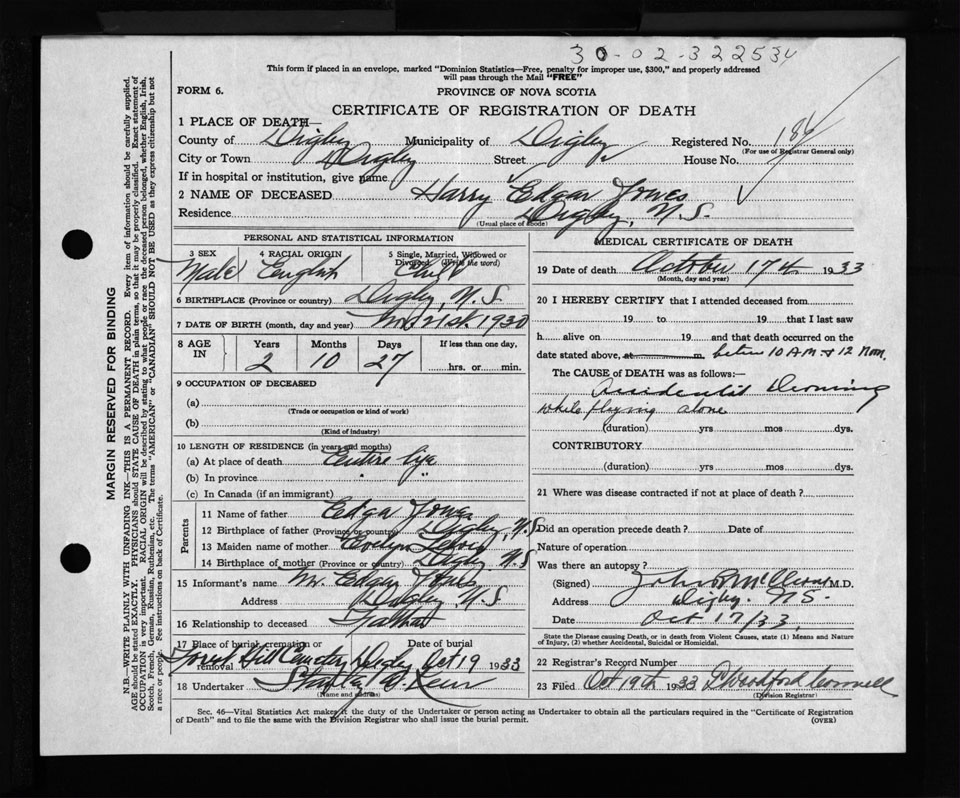 30-02-322534
This form if placed in an envelope, marked "Dominion Statistics—Free, penalty for improper use, $300," and properly addressed
will pass through the Mail "FREE"
FORM 6.
PROVINCE OF NOVA SCOTIA
CERTIFICATE OF REGISTRATION OF DEATH
1 PLACE OF DEATH—
County of Digby Municipality of Digby Registered No. 186
(For use of Registrar General only)
City or Town Digby Street House No.
If in hospital or institution, give name
2 NAME OF DECEASED Harry Edgar Jones
Residence Digby, N.S.
(Usual place of abode)
PERSONAL AND STATISTICAL INFORMATION
3 SEX 4 RACIAL ORIGIN 5 Single, Married, Widowed or
Divorced (Write the word)
Male English Child
6 BIRTHPLACE (Province or country) Digby, N.S.
7 DATE OF BIRTH (month, day and year) Nov. 21st. 1930
8 AGE IN Years Months Days If less than one day,
2 10 27 hrs. or min.
9 OCCUPATION OF DECEASED
(a)
(Trade or occupation or kind of work)
(b)
(Kind of industry)
10 LENGTH OF RESIDENCE (in years and months)
(a) At place of death Entire life
(b) In province " "
(c) In Canada (if an immigrant)
Parents
11 Name of father Edgar Jones
12 Birthplace of father (Province or country) Digby, N.S.
13 Maiden name of mother Evelyn
14 Birthplace of mother (Province or country) Digby N.S
15 Informant's name Mr. Edgar Jones
Address Digby, N.S
16 Relationship to deceased Father
17 Place of burial, cremation or removal Date of burial
Forest Hill Cemetery Digby Oct 19 1933
18 Undertaker
(Name and address)
MEDICAL CERTIFICATE OF DEATH
19 Date of death October 17th 1933
(Month, day and year)
20 I HEREBY CERTIFY that I attended deceased from
19 to 19 that I last saw
h alive on 19 and that death occurred on the
date stated above, at m. between 10 A.M. & 12 Noon.
The CAUSE of DEATH was as follows:—
Accidental Drowning
while playing alone
(duration) yrs mos dys.
CONTRIBUTORY
(duration) yrs mos dys.
21 Where was disease contracted if not at place of death?
Did an operation precede death? Date of
Nature of operation
Was there an autopsy?
(Signed) M.D.
Address Digby. N.S.
Date Oct. 17/33.
State the Disease causing Death, or in death from Violent Causes, state (1) Means and Nature
of Injury, (2) whether Accidental, Suicidal or Homicidal.
22 Registrar's Record Number
23 Filed Oct 19th 1933
(Division Registrar)
Sec. 46—Vital Statistics Act makes it the duty of the Undertaker or person acting as Undertaker to obtain all the particulars required in the "Certificate of Registration
of Death" and to file the same with the Division Registrar who shall issue the burial permit.
(OVER)
MARGIN RESERVED FOR BINDING
N.B.—WRITE PLAINLY WITH UNFADING INK—THIS IS A PERMANENT RECORD. Every item of information should be carefully supplied.
AGE should be stated EXACTLY. PHYSICIANS should STATE CAUSE OF DEATH in plain terms, so that it may be properly classified. Exact statement of
OCCUPATION is very important. RACIAL ORIGIN will be described by stating to what people or race the deceased person belonged, whether English, Irish,
Scotch, French, German, Russian, Ruthenian, etc. The terms "AMERICAN" or "CANADIAN" SHOULD NOT BE USED as they express citizenship but not
a race or people. See instructions on back of Certificate.